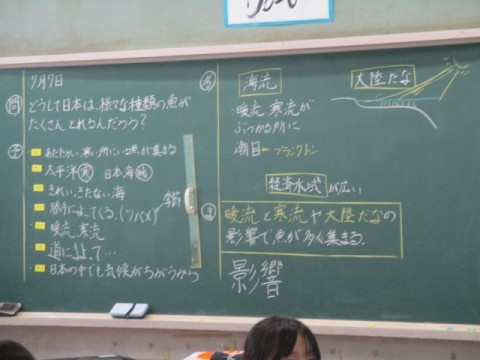 7月7日
問
どうして日本は、様々な種類の魚が
たくさん とれるんだろう?
予
あたたかい、寒い所にいる魚が集まる
太平洋 寒 日本海 暖
きれい、きたない海
勝手によってくる。(ツバメ)
暖流、寒流
道によって…
日本の中でも気候がちがうから
海流
大陸だな
・暖流 寒流が
ぶつかる所に
潮目←プランクトン
が広い
ま
暖流と寒流や大陸だなの
影響で魚が多く集まる。
影響